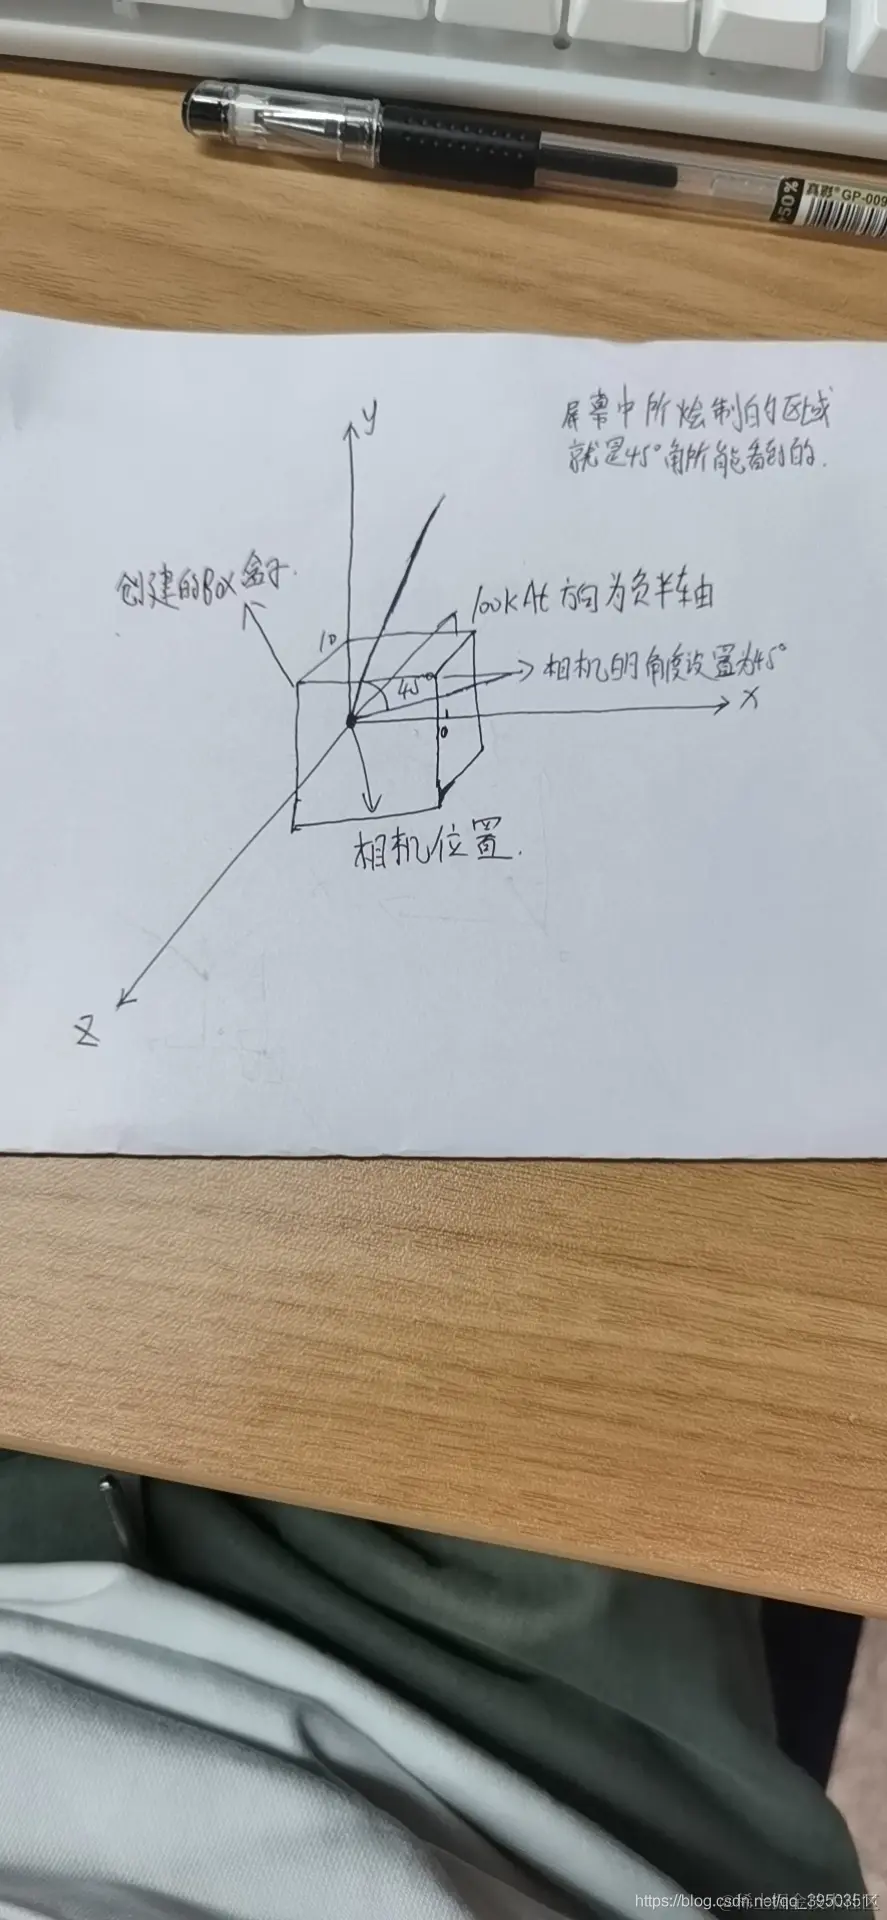 50%
真彩® GP-009
屏幕中所绘制的区域
就是45°角所能看到的.
y
创建的Box盒子.
lookAt 方向为负半轴
10
相机的角度设置为45°
45°
x
相机位置.
z
https://blog.csdn.net/qq_39503511
@稀土掘金技术社区